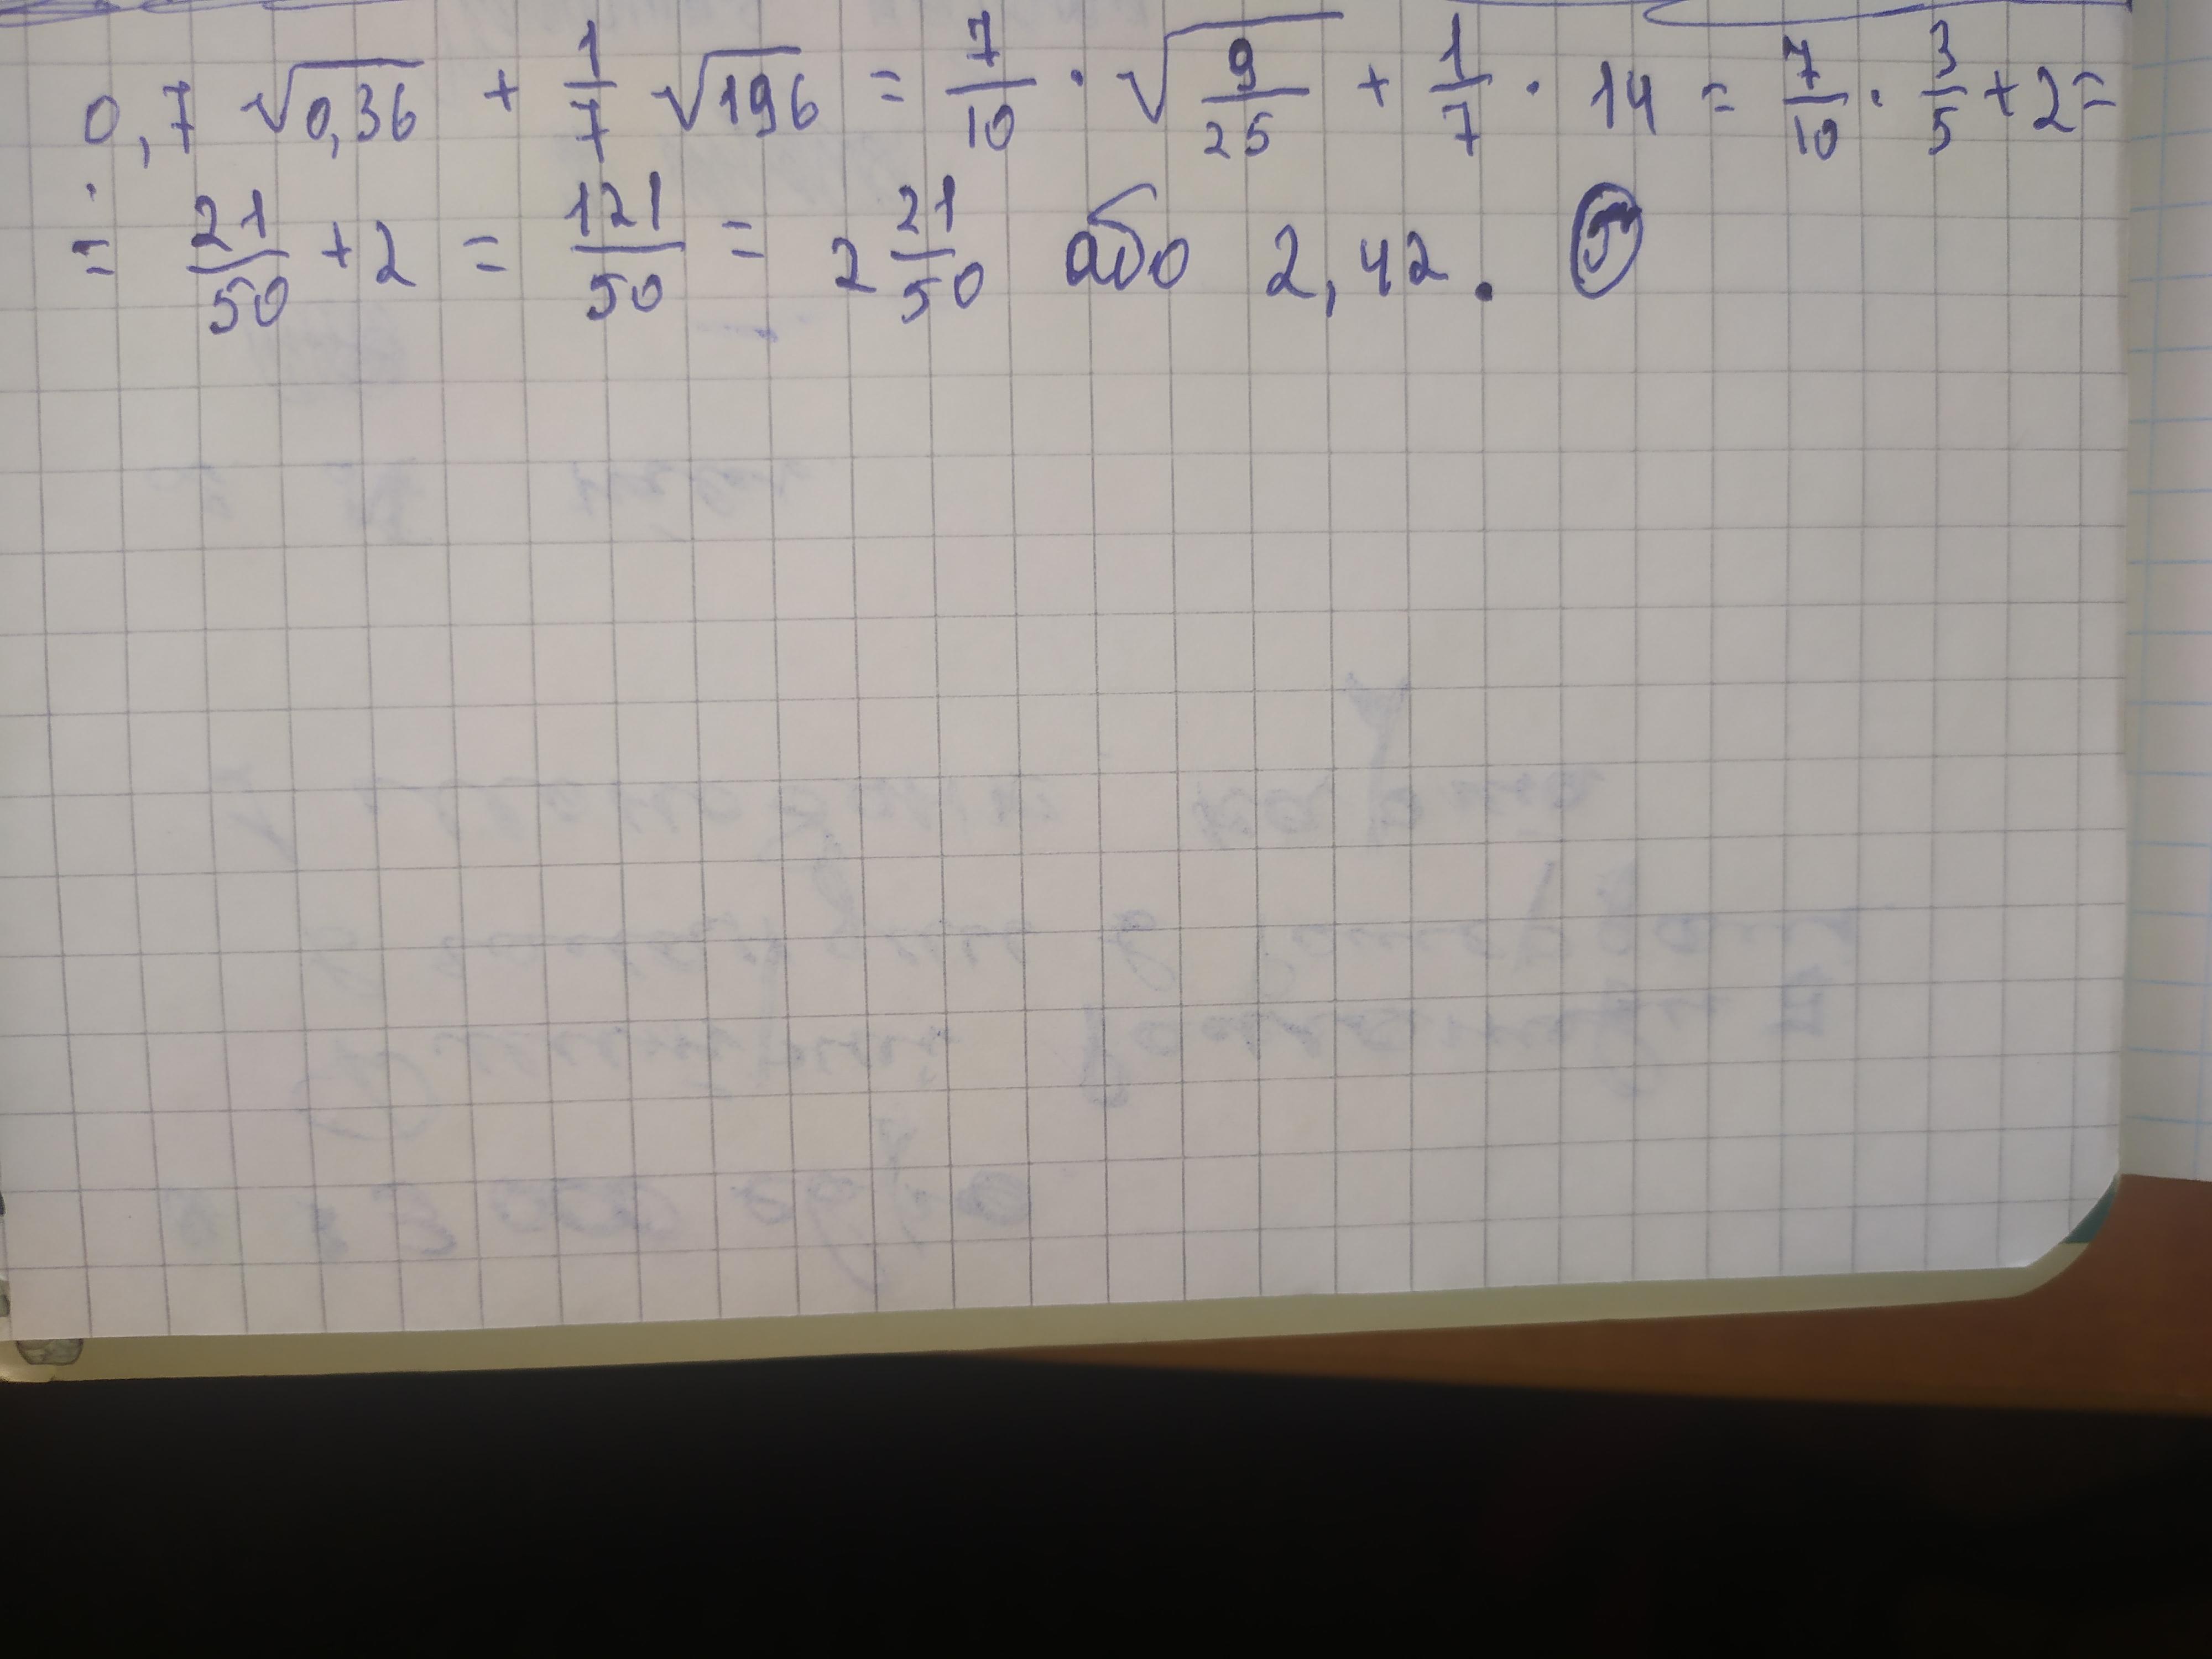 0,7 √0,36 + 1/7 √196 = 7/10 · √9/25 + 1/7 · 14 = 7/10 · 3/5 + 2 =
= 21/50 + 2 = 121/50 = 2 21/50 або 2,42.